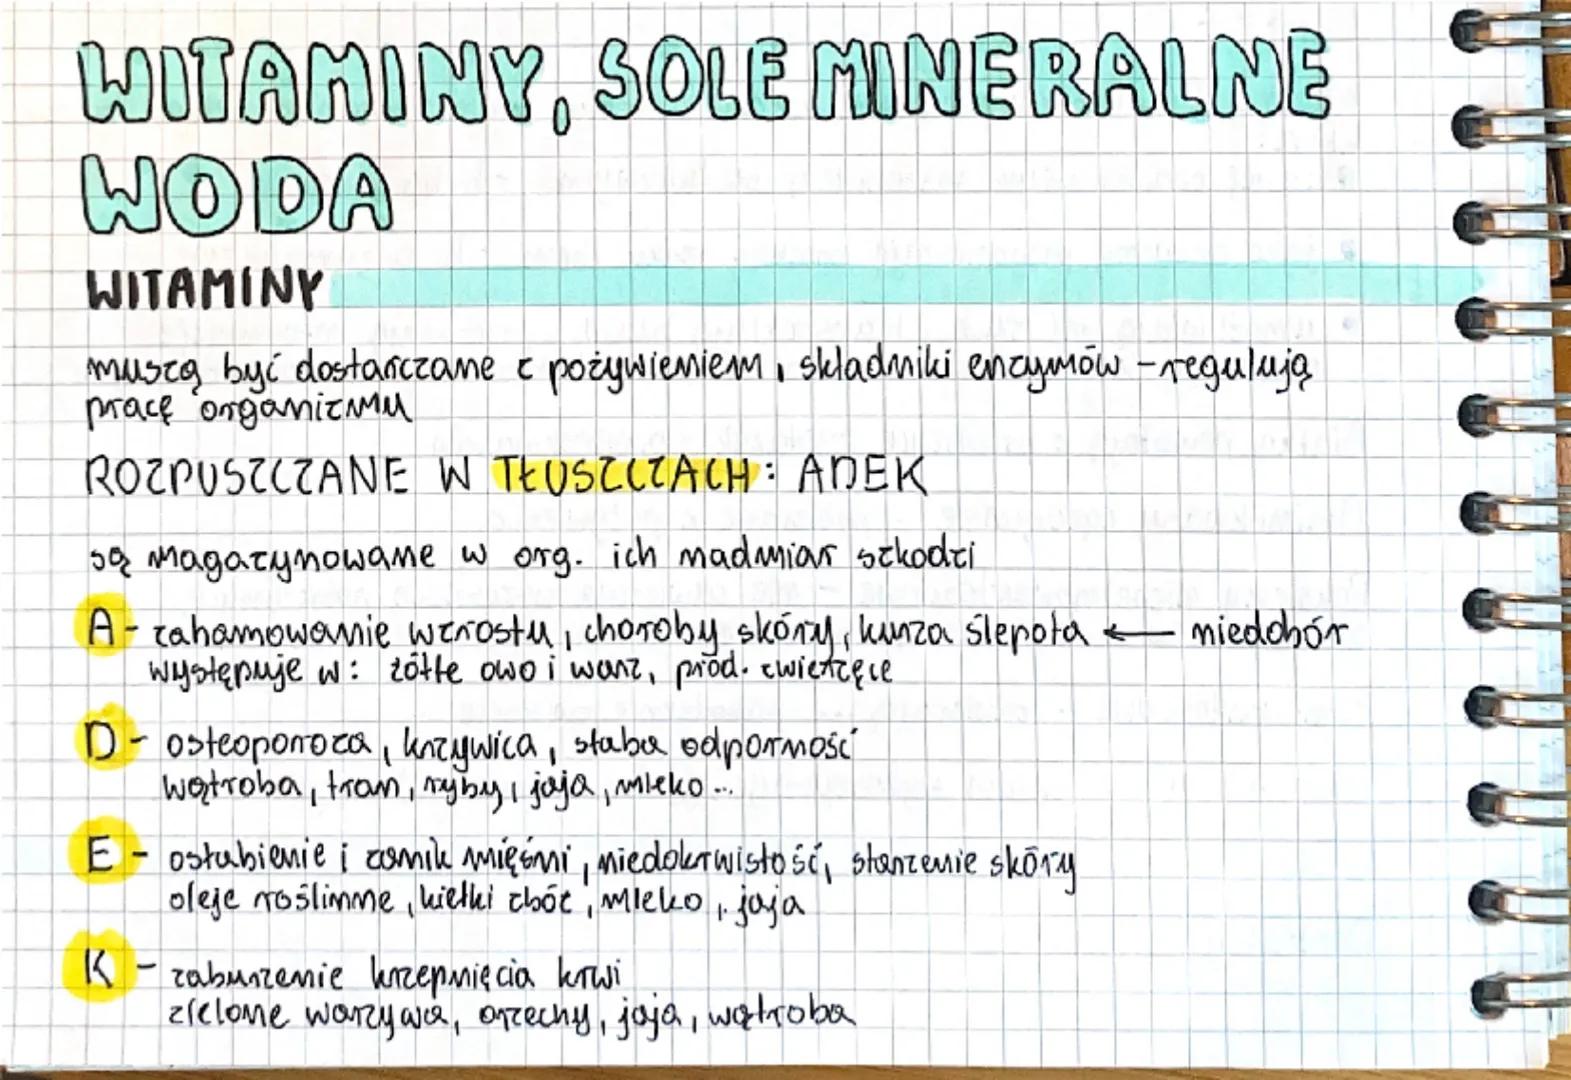 WITAMINY, SOLE MINERALNE
WODA
WITAMINY
muszą być dostarczane z pożywieniem, składniki enzymów - regulują
pracę organizmu
ROZPUSZCZANE W TŁUSZCZACH: ADEK
są magazynowane w org. ich nadmiar szkodzi
A - zahamowanie wzrostu, choroby skóry, kurza ślepota ← niedobór
występuje w: żółte owo i warz, prod. zwierzęce
D - osteoporoza, krzywica, słaba odporność
wątroba, tran, ryby, jaja, mleko...
E - osłabienie i zanik mięśni, niedokrwistość, starzenie skóry
oleje roślinne, kiełki zbóż, mleko, jaja
K - zaburzenie krzepnięcia krwi
zielone warzywa, orzechy, jaja, wątroba